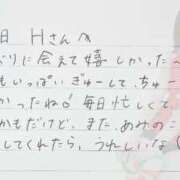 日 Hさんへ
ぶりに会えて嬉しかった〜
もいっぱいぎゅーして、ちゅー
かったね! 毎日忙しくて
かもだけど、また、あみのこ
してくれたら、うれしいな